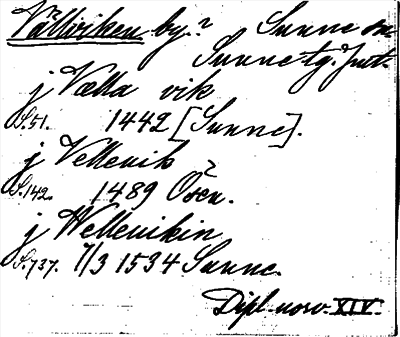 Vällviken by.? Sunne sn
Sunne tg. Jmtl.
j Vella vik
S. 51. 1442 [Sunne].
j Vellevik
S. 142. 1489 Osen. ?
j Wellevikin
S. 737. 7/3 1534 Sunne.
Dipl. norv. XIV.